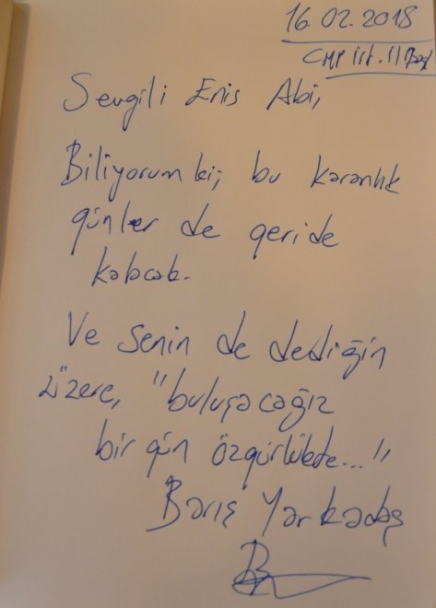 16.02.2018
CHP İst. İl Bşk
Sevgili Enis Abi,
Biliyorum ki; bu karanlık
günler de geride
kalacak.
Ve senin de dediğin
üzere, "buluşacağız
bir gün özgürlükte..."
Barış Yarkadaş